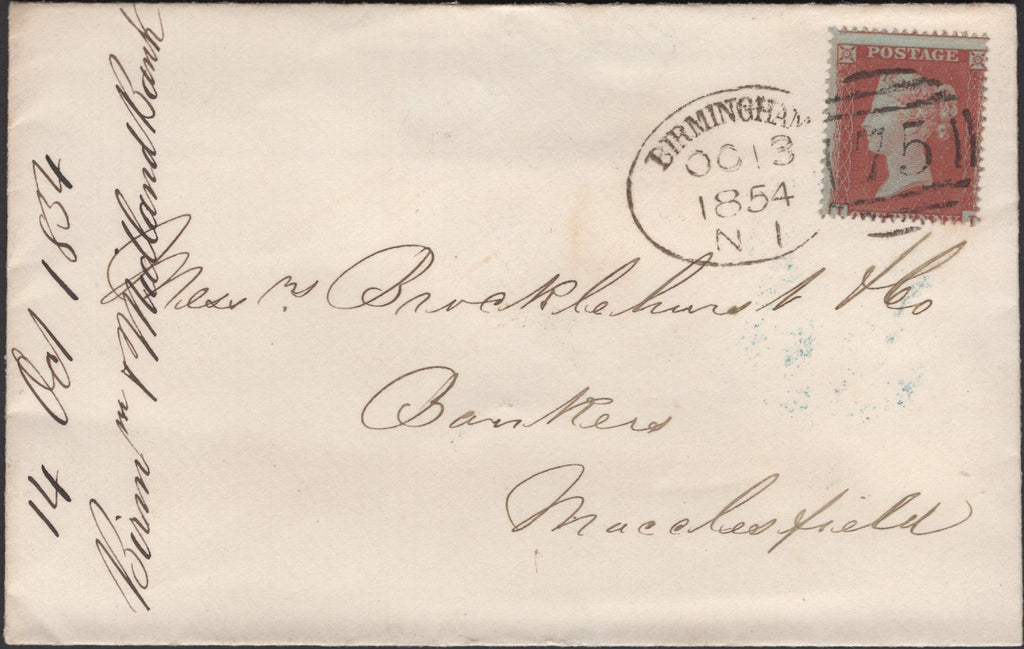 POSTAGE
BIRMINGHAM
OC 13
1854
N 1
75
Mess rs Brocklehurst & Co
Bankers
Macclesfield
14 Oct 1854
Birmm & Midland Bank